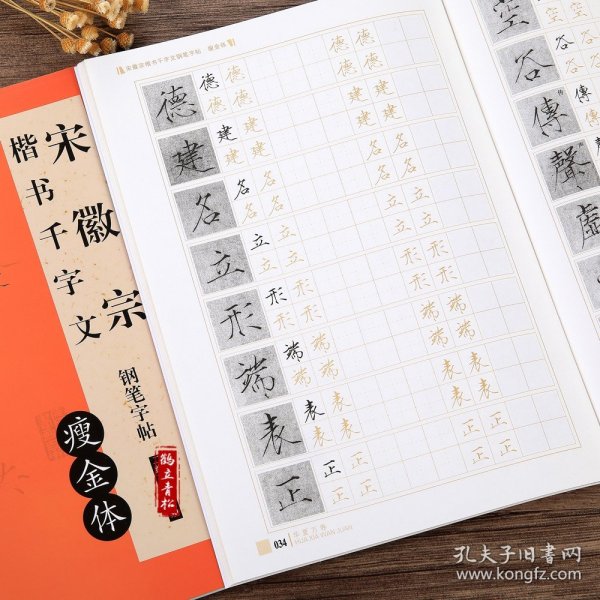 宋徽宗
楷书千字文
钢笔字帖
瘦金体
鹤立青松
宋徽宗楷书千字文钢笔字帖 瘦金体
德 德 德 德 德 德 德 德
建 建 建 建 建 建 建 建
名 名 名 名 名 名 名 名
立 立 立 立 立 立 立 立
形 形 形 形 形 形 形 形
端 端 端 端 端 端 端 端
表 表 表 表 表 表 表 表
正 正 正 正 正 正 正 正
034 华夏万卷
HUA XIA WAN JUAN
空 空 空
谷 谷 谷 谷
傳 传 傳 傳
聲 聲
虛
孔夫子旧书网
www.kongfz.com